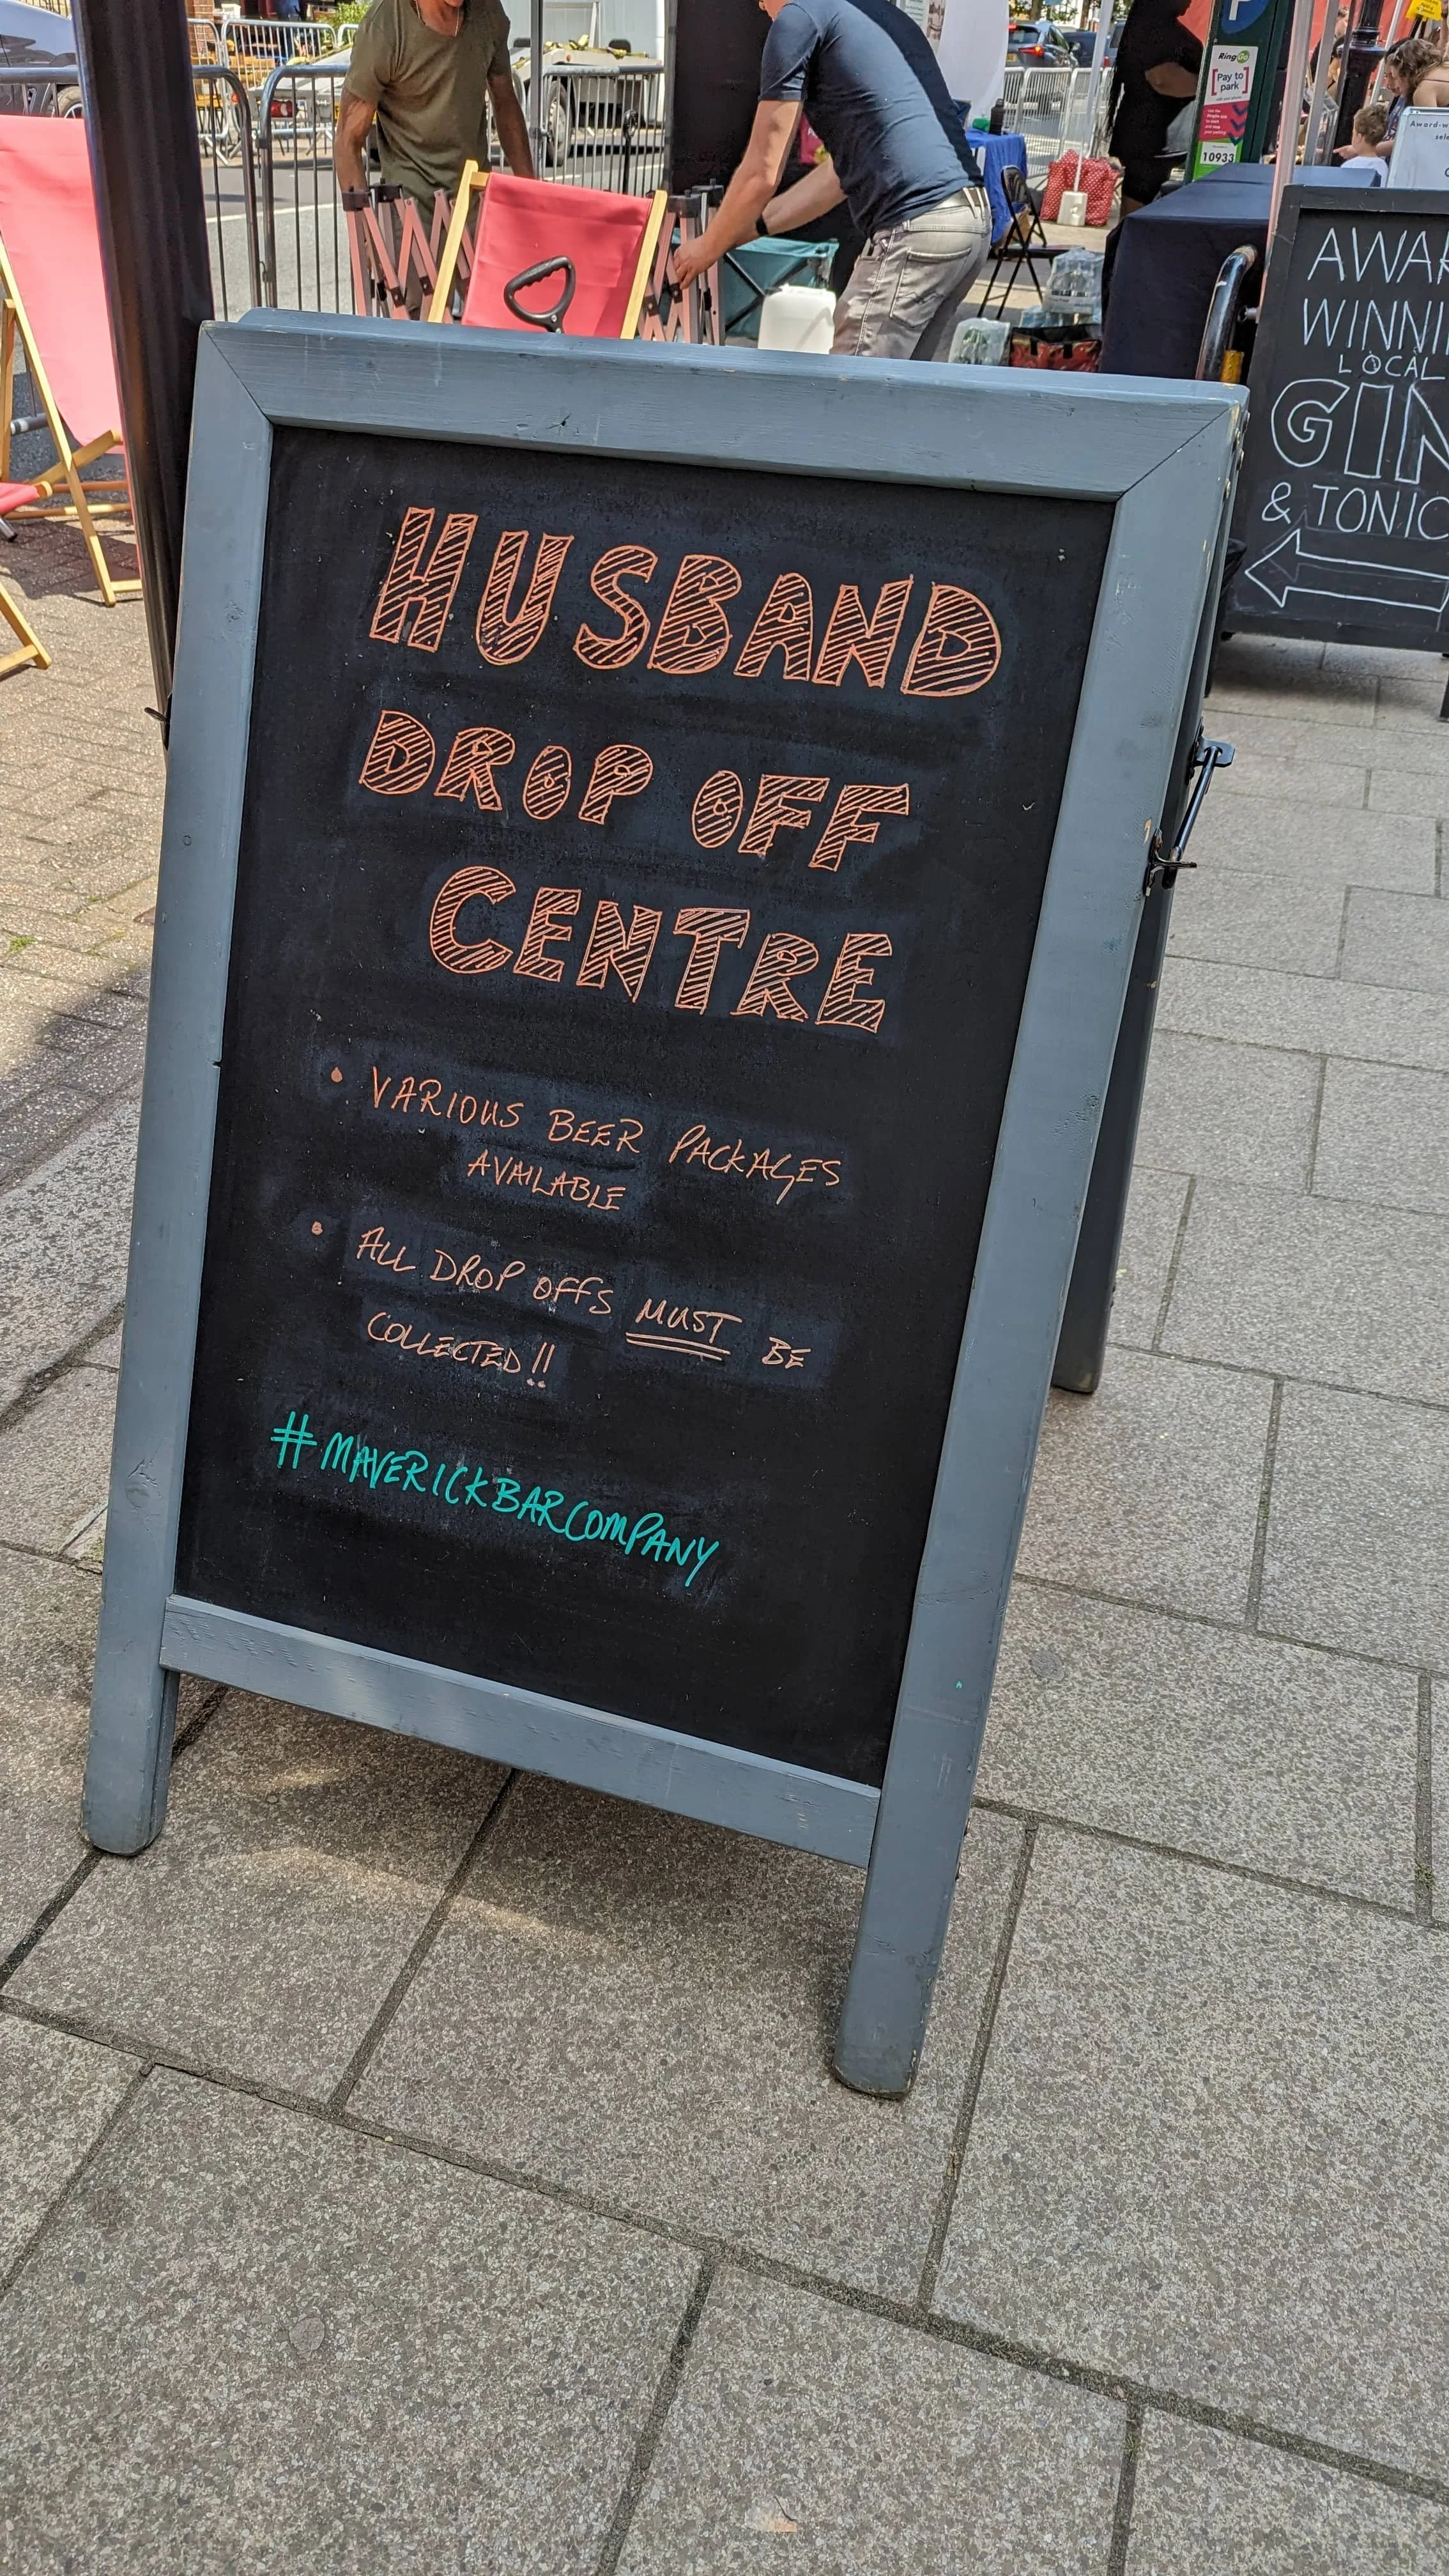 HUSBAND
DROP OFF
CENTRE
• VARIOUS BEER PACKAGES
AVAILABLE
• ALL DROP OFFS MUST BE
COLLECTED!!
#MAVERICKBARCOMPANY
LOCAL
GIN
& TONIC
P
RingGo
Pay to
park
10933